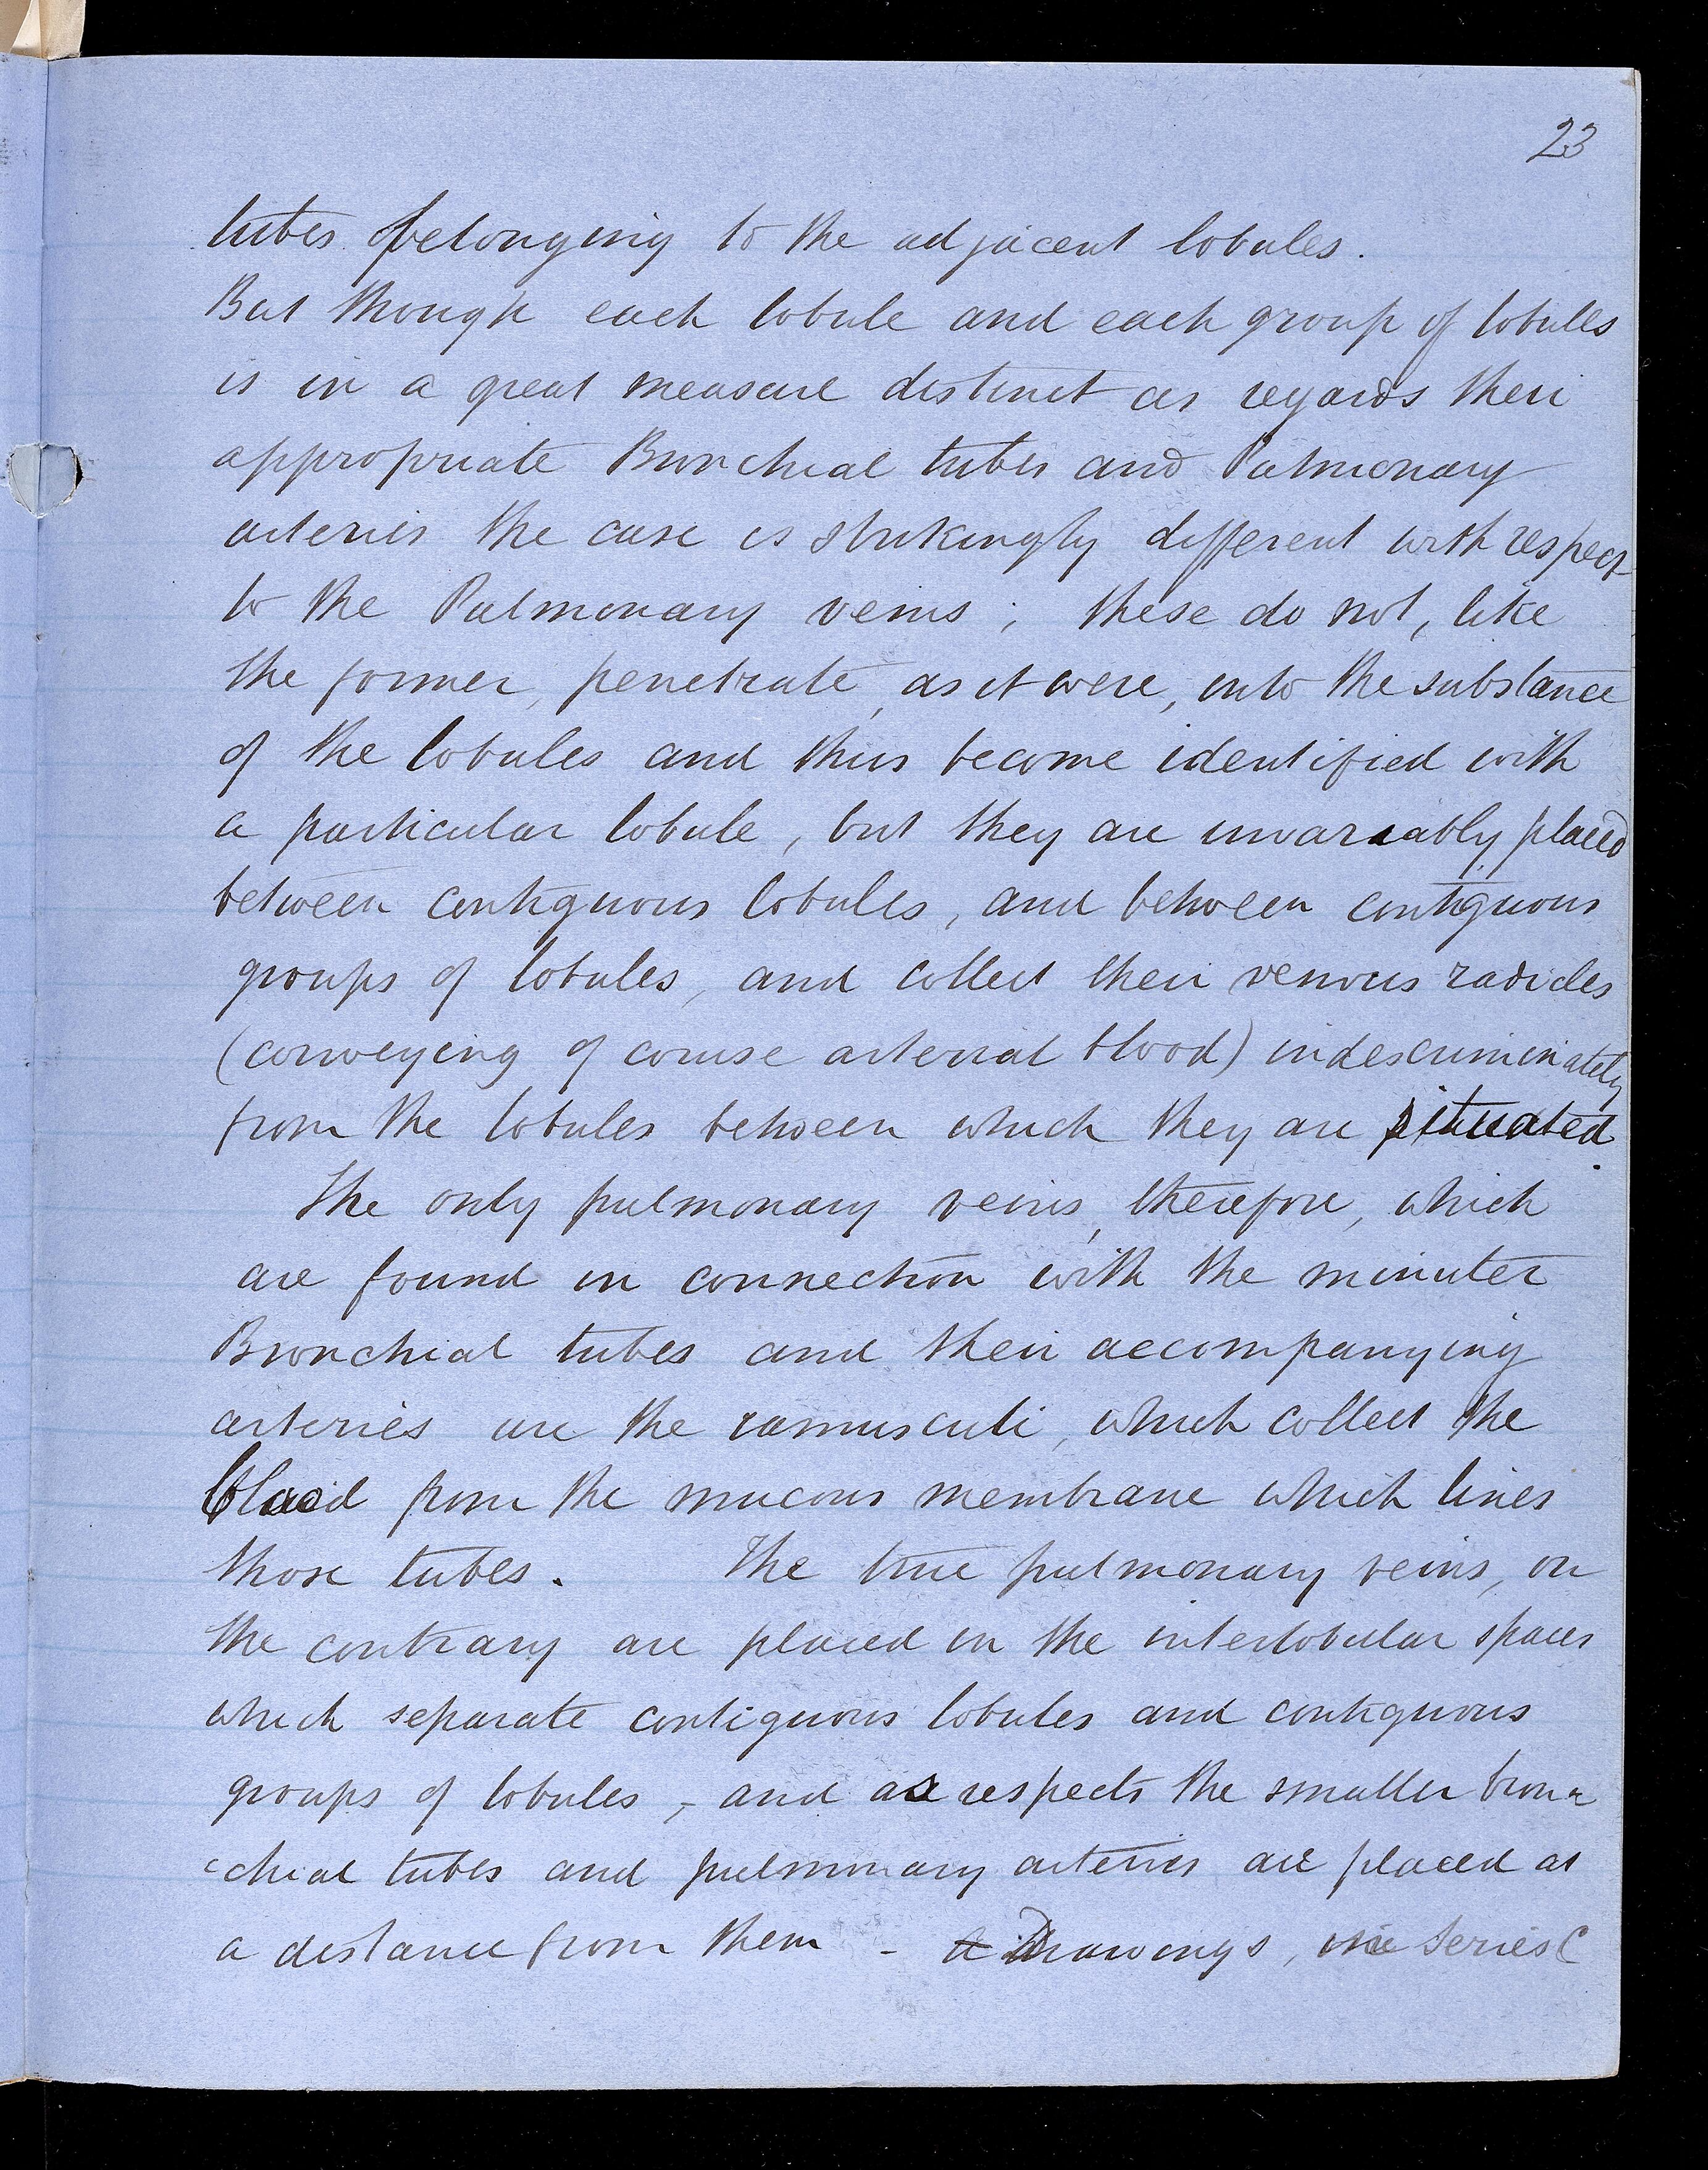 23
tubes belonging to the adjacent lobules.
But though each lobule and each group of lobules
is in a great measure distinct as regards their
appropriate Bronchial tubes and Pulmonary
arteries the case is strikingly different with respect
to the Pulmonary veins ; these do not, like
the former, penetrate, as it were, into the substance
of the lobules and thus become identified with
a particular lobule, but they are invariably placed
between contiguous lobules, and between contiguous
groups of lobules, and collect their venous radicles
(conveying of course arterial blood) indescriminately
from the lobules between which they are situated.
The only pulmonary veins, therefore, which
are found in connection with the minuter
Bronchial tubes and their accompanying
arteries are the ramusculi, which collect the
blood from the mucous membrane which lines
those tubes. The true pulmonary veins, on
the contrary are placed in the interlobular spaces
which separate contiguous lobules and contiguous
groups of lobules, - and as respects the smaller bron-
-chial tubes and pulmonary arteries are placed at
a distance from them - Drawings, Series C